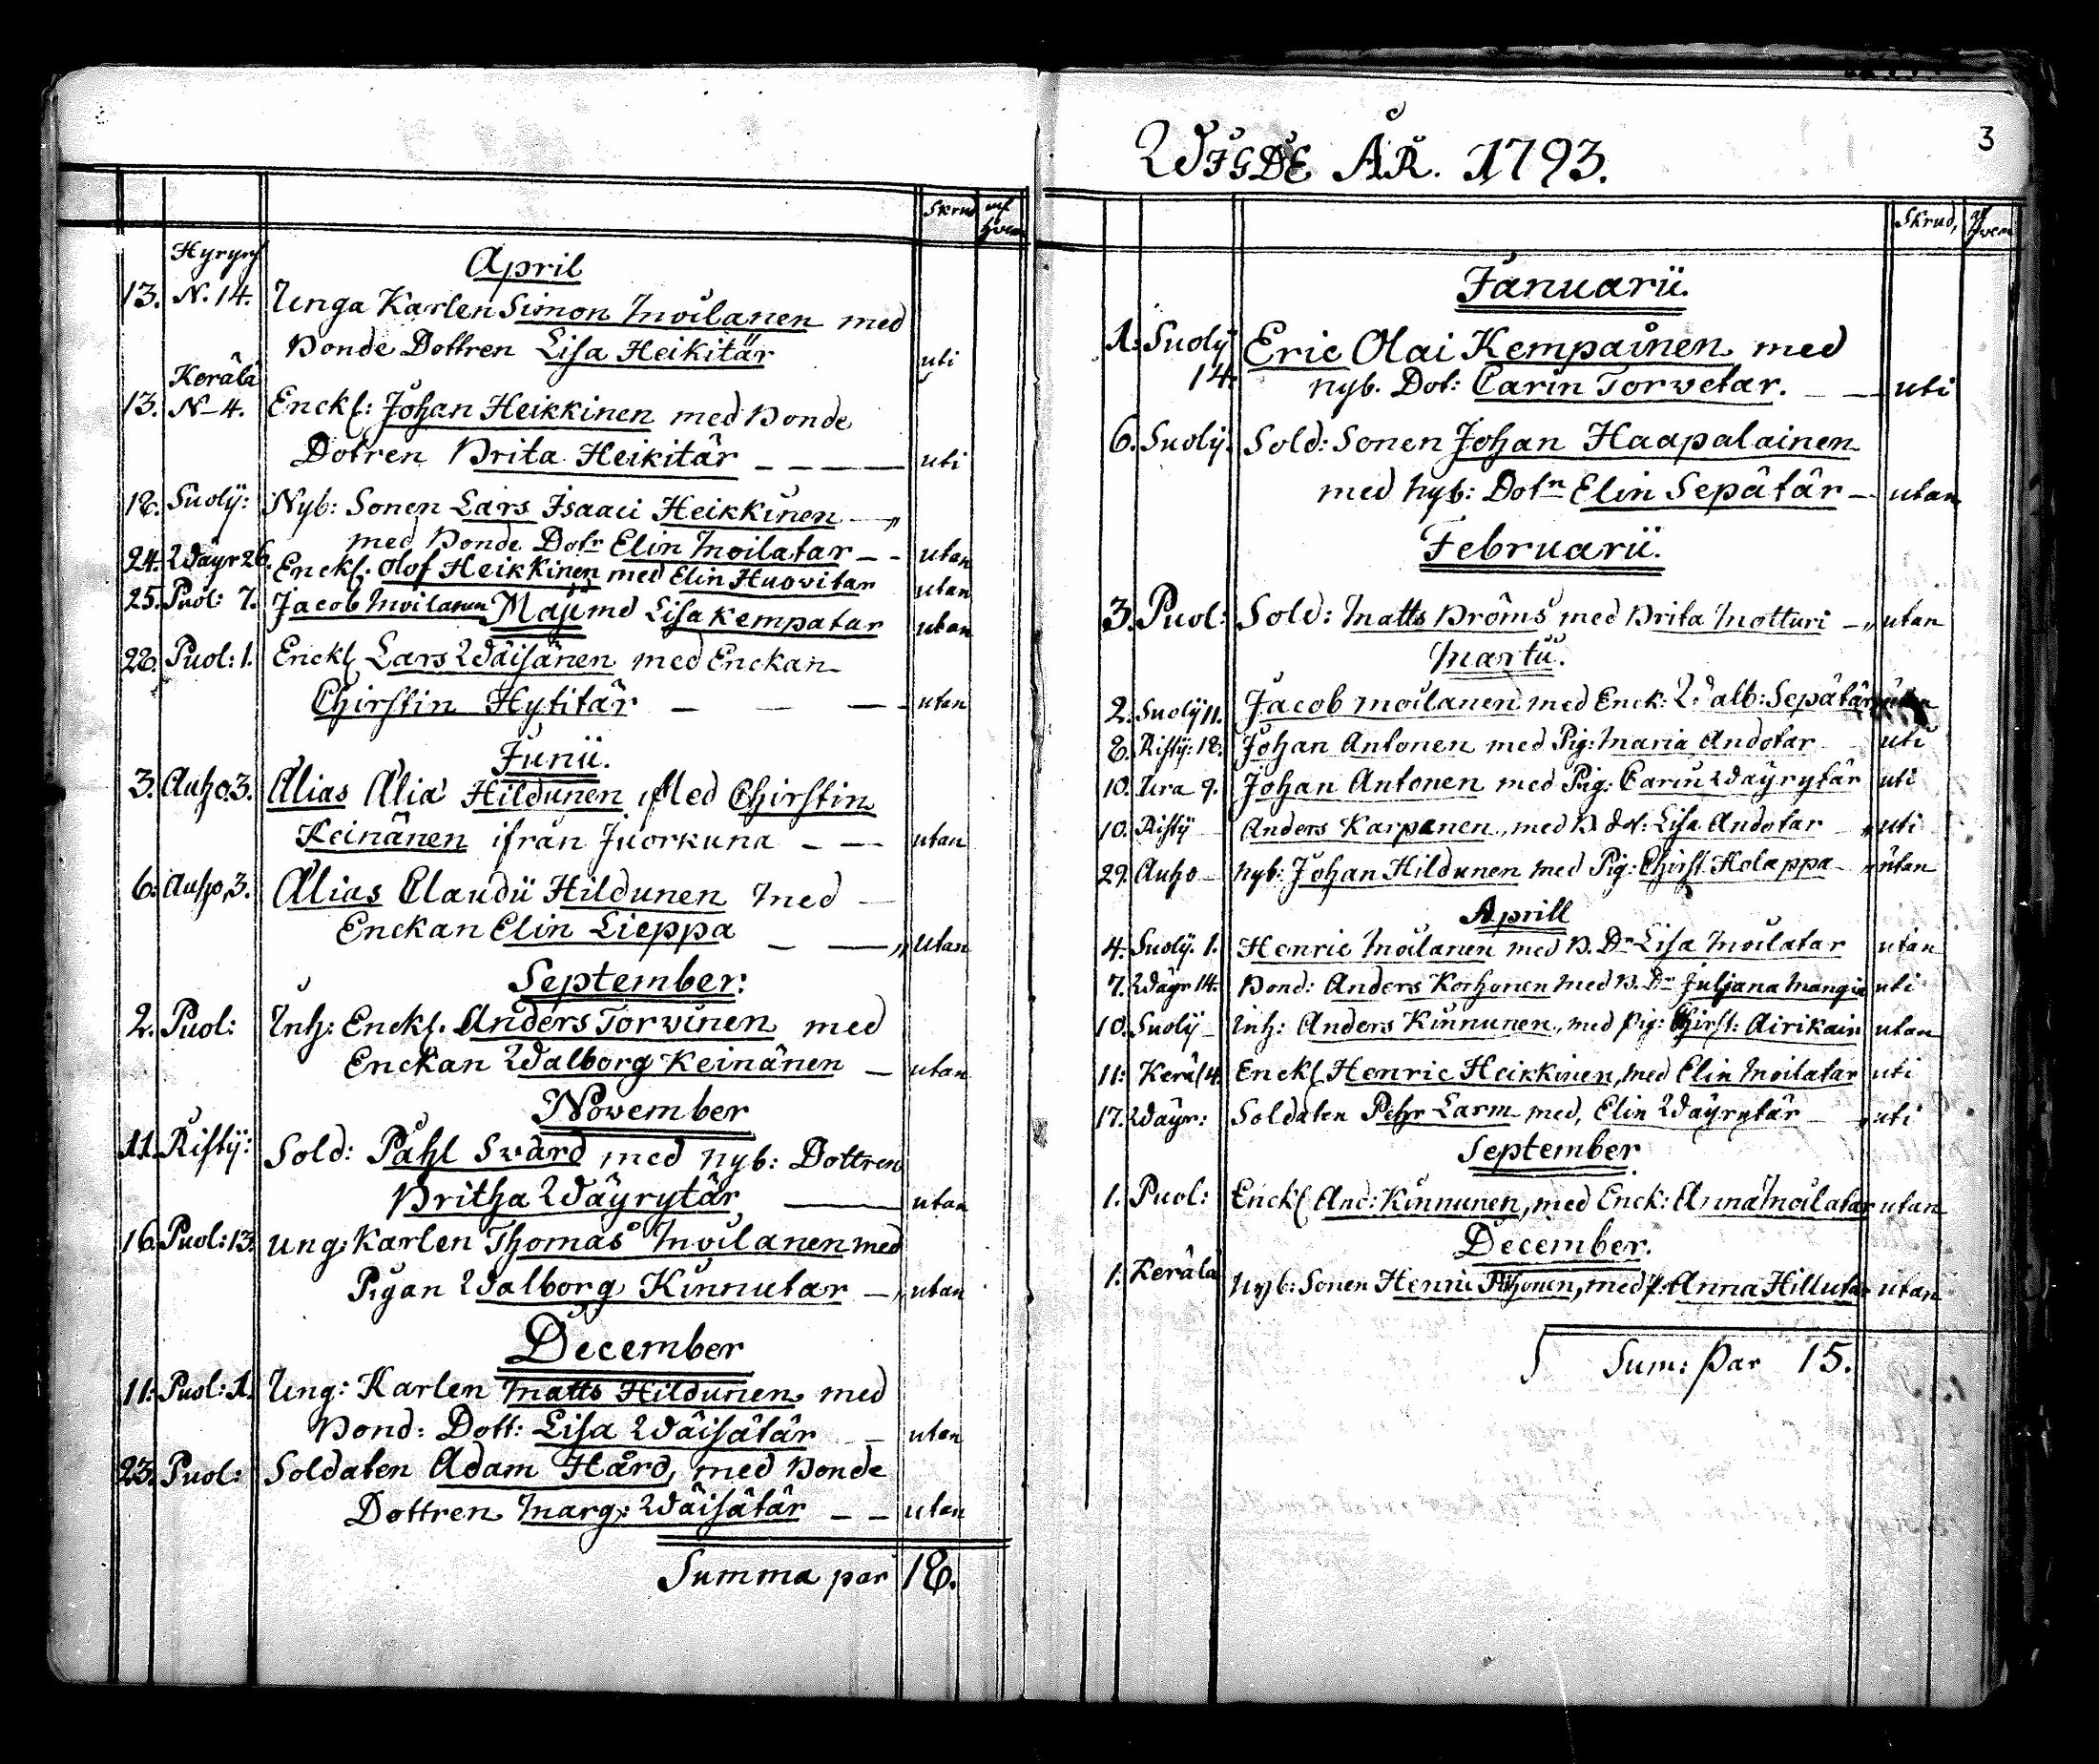 Skrud af hvem
April
Hyryns
13. N. 14. Unga Karlen Simon Moilanen med
Bonde Dottren Lisa Heikitär uti
Kerälä
13. N-4. Enckl: Johan Heikkinen med Bonde
Dotren Brita Heikitär - - - - uti
18. Suolÿ: Nyb: Sonen Lars Isaaci Heikkinen - „
med Bonde Dotr Elin Moilatar - - utan
24. Wäyr 26. Enckl. Olof Heikkinen med Elin Huovitar utan
25. Puol: 7. Jacob Moilanen Maji md Lisa Kempatar utan
28. Puol: 1. Enckl Lars Wäisänen med Enckan
Chirstin Hytitär - - - utan
Junii.
3. Auho. 3. Elias Eliæ Hildunen Med Chirstin
Keinänen ifrån Juorkuna - - utan
6. Auho, 3. Elias Claudii Hildunen med -
Enckan Elin Lieppa - - „ utan
September:
2. Puol: Inh: Enckl. Anders Torvinen med
Enckan Walborg Keinänen - utan
November
11. Ristÿ: Sold: Påhl Svärd med nyb: Dottren
Britha Wäyrytär - utan
16. Puol: 13. ung: Karlen Thomas Moilanen med
Pigan Walborg Kinnutar - „ utan
December
11: Puol: 1. Ung: Karlen Matts Hildunen med
Bond: Dott: Lisa Wäisätär - utan
23. Puol: Soldaten Adam Hård, med Bonde
Dottren Marg: Wäisätär - - utan
Summa par 18.
3
WIGDE ÅR. 1793.
Skrud, af hvem
Januarii.
1. Suolÿ Eric Olai Kempainen med
14. nyb. Dot: Carin Torvetar. - - uti
6. Suolÿ. Sold: Sonen Johan Haapalainen
med nyb: Dotn Elin Sepätär - utan
Februarii.
3. Puol: Sold: Matts Bröms med Brita Motturi - „ utan
Martii.
2. Suolÿ 11. Jacob Moilanen med Enck: Walb: Sepätär utan
8. Ristÿ: 18. Johan Antonen med Pig: Maria Andotar uti
10. Ura 9. Johan Antonen med Pig: Carin Wäyrytär uti
10. Ristÿ Anders Karpanen, med B. dot: Lisa Andotar „ uti
29. Auho - nyb: Johan Hildunen med Pig: Chirst Holappa - „ utan
Aprill
4. Suolÿ. 1. Henric Moilanen med B. Dr Lisa Moilatar utan
7. Wäyr 14. Bond: Anders Korhonen med B. Dr Juljana Mangin uti
10. Suolÿ - Inh: Anders Kinnunen, med pig: Chirst: Airikain utan
11: Keräl 4. Enckl Henric Heikkinen, med Elin Moilatar uti
17. Wäyr: Soldaten Pehr Larm med, Elin Wäyrytär - „ uti
September
1. Puol: Enckl And: Kinnunen, med Enck: Anna Moilatar utan
December.
1. Kerälä nyb: Sonen Henric Pihonen, med p: Anna Hillutar utan
Sum: Par 15.